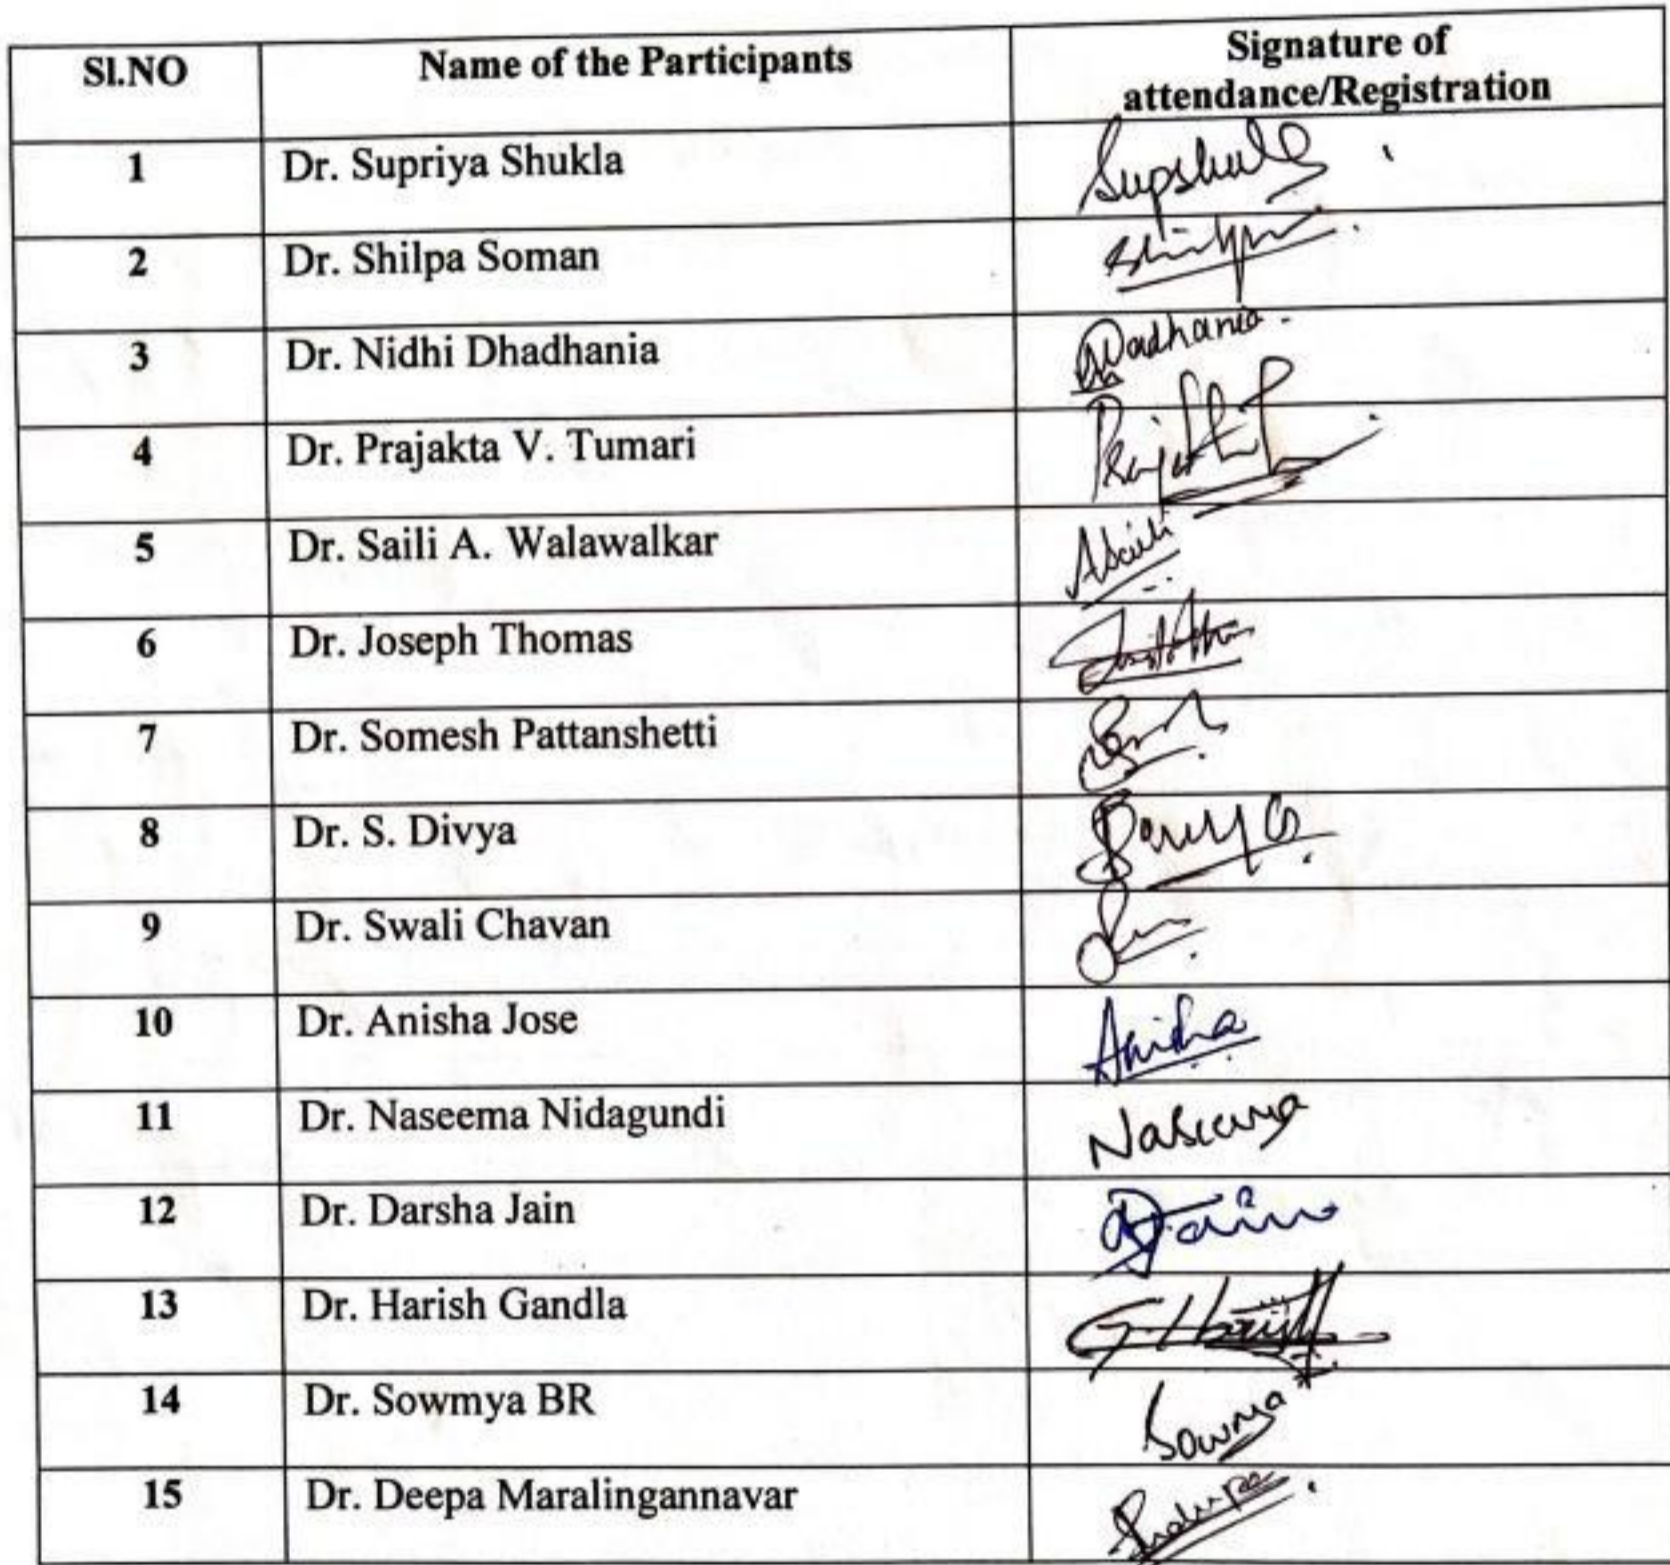 Sl.NO Name of the Participants Signature of
attendance/Registration
1 Dr. Supriya Shukla
2 Dr. Shilpa Soman
3 Dr. Nidhi Dhadhania
4 Dr. Prajakta V. Tumari
5 Dr. Saili A. Walawalkar
6 Dr. Joseph Thomas
7 Dr. Somesh Pattanshetti
8 Dr. S. Divya
9 Dr. Swali Chavan
10 Dr. Anisha Jose Anisha
11 Dr. Naseema Nidagundi Naseema
12 Dr. Darsha Jain DJain
13 Dr. Harish Gandla G. Harish
14 Dr. Sowmya BR Sowmya
15 Dr. Deepa Maralingannavar